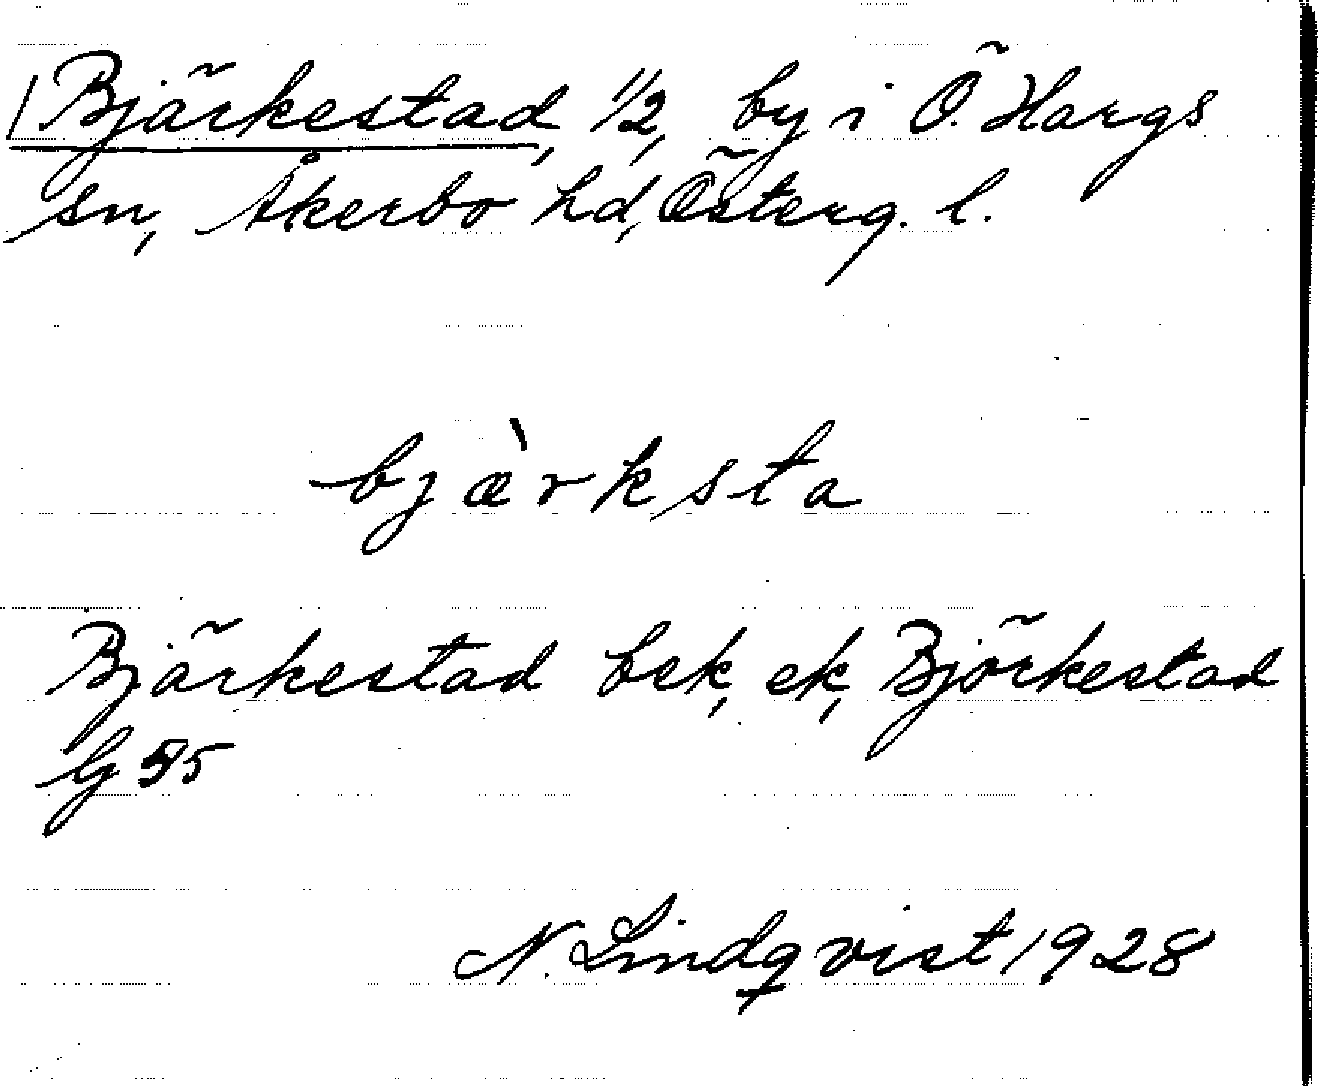 Bjärkestad, 1/2, by i Ö. Hargs
sn, Åkerbo hd, Österg. l.
bjæ̀rksta
Bjärkestad bek, ek, Björkestad
G 55
N. Lindqvist 1928